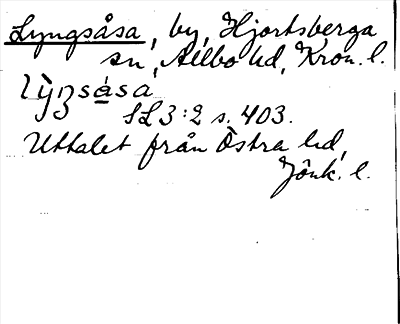 Lyngsåsa, by, Hjortsberga
sn, Allbo hd, Kron. l.
lỳŋsa̲sa
SL 3:2 s. 403.
Uttalet från Östra hd,
Jönk. l.